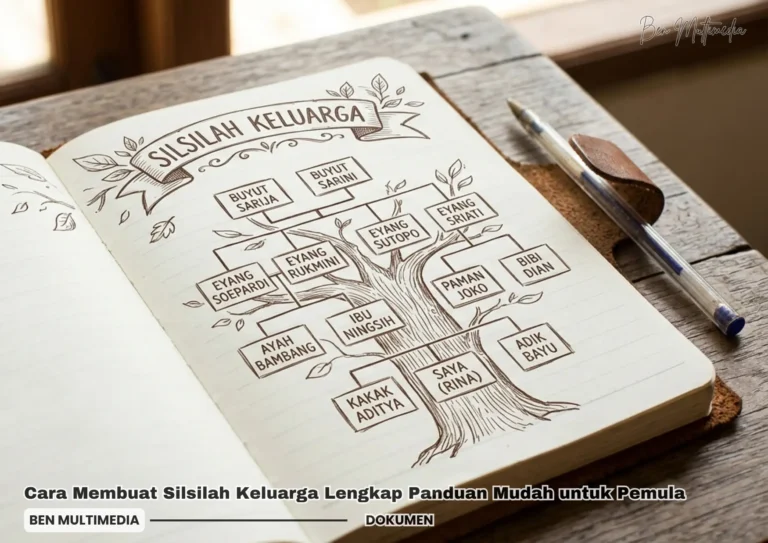 Ben Multimedia
SILSILAH KELUARGA
BUYUT
SARIJA
BUYUT
SARINI
EYANG
SOEPARDI
EYANG
RUKMINI
EYANG
SUTOPO
EYANG
SRIATI
AYAH
BAMBANG
IBU
NINGSIH
PAMAN
JOKO
BIBI
DIAN
KAKAK
ADITYA
SAYA
(RINA)
ADIK
BAYU
Cara Membuat Silsilah Keluarga Lengkap Panduan Mudah untuk Pemula
BEN MULTIMEDIA
DOKUMEN